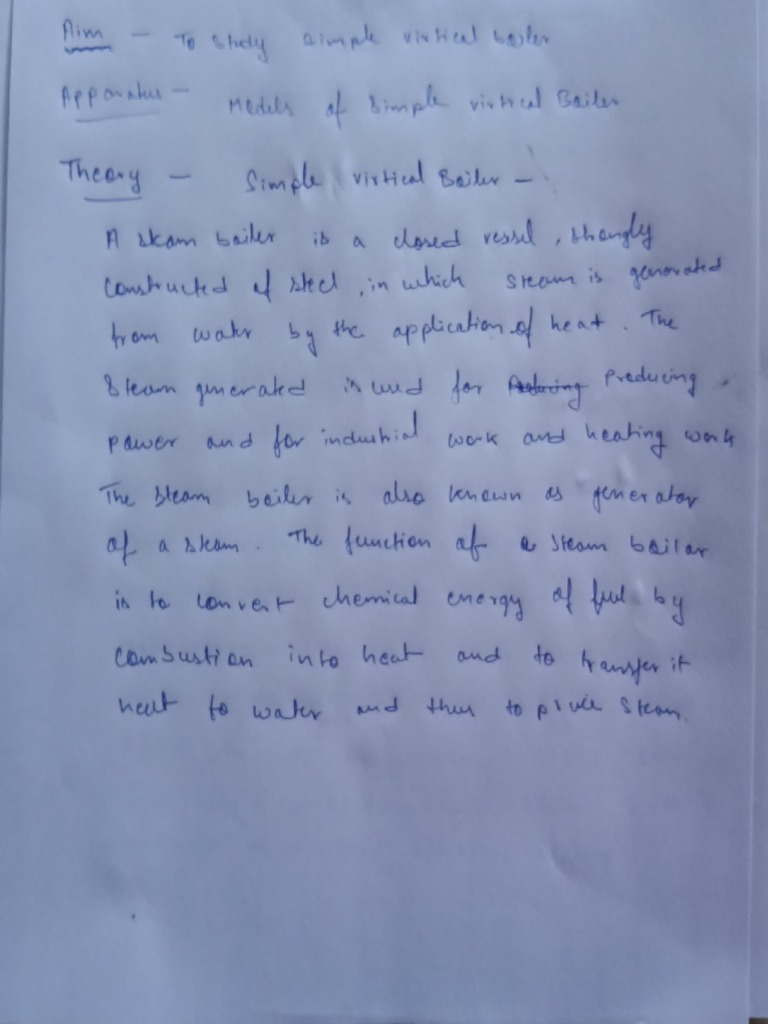 Aim - To study simple virtical boiler
Apparatus - Models of Simple virtical Boiler
Theory - Simple virtical Boiler -
A steam boiler is a closed vessel, strongly
constructed of steel, in which steam is generated
from water by the application of heat. The
Steam generated is used for Producing
power and for industrial work and heating work
The steam boiler is also known as generator
of a steam. The function of a steam boilar
is to convert chemical energy of fuel by
combustion into heat and to transfer it
heat to water and thus to steam.